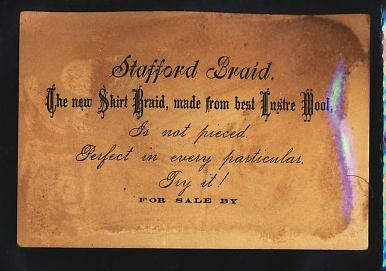 Stafford Braid.
The new Skirt Braid, made from best Lustre Wool,
Is not pieced.
Perfect in every particular.
Try it!
FOR SALE BY